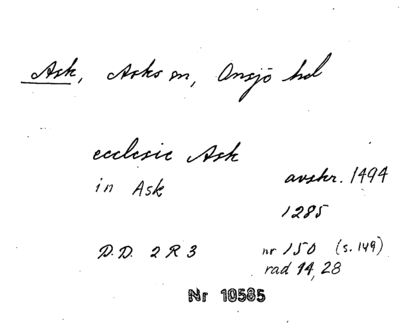 Ask, Asks sn, Onsjö hd
ecclesie Ask
in Ask
avskr. 1494
1285
D.D. 2 R 3
nr 150 (s. 149)
rad 14, 28
Nr 10585